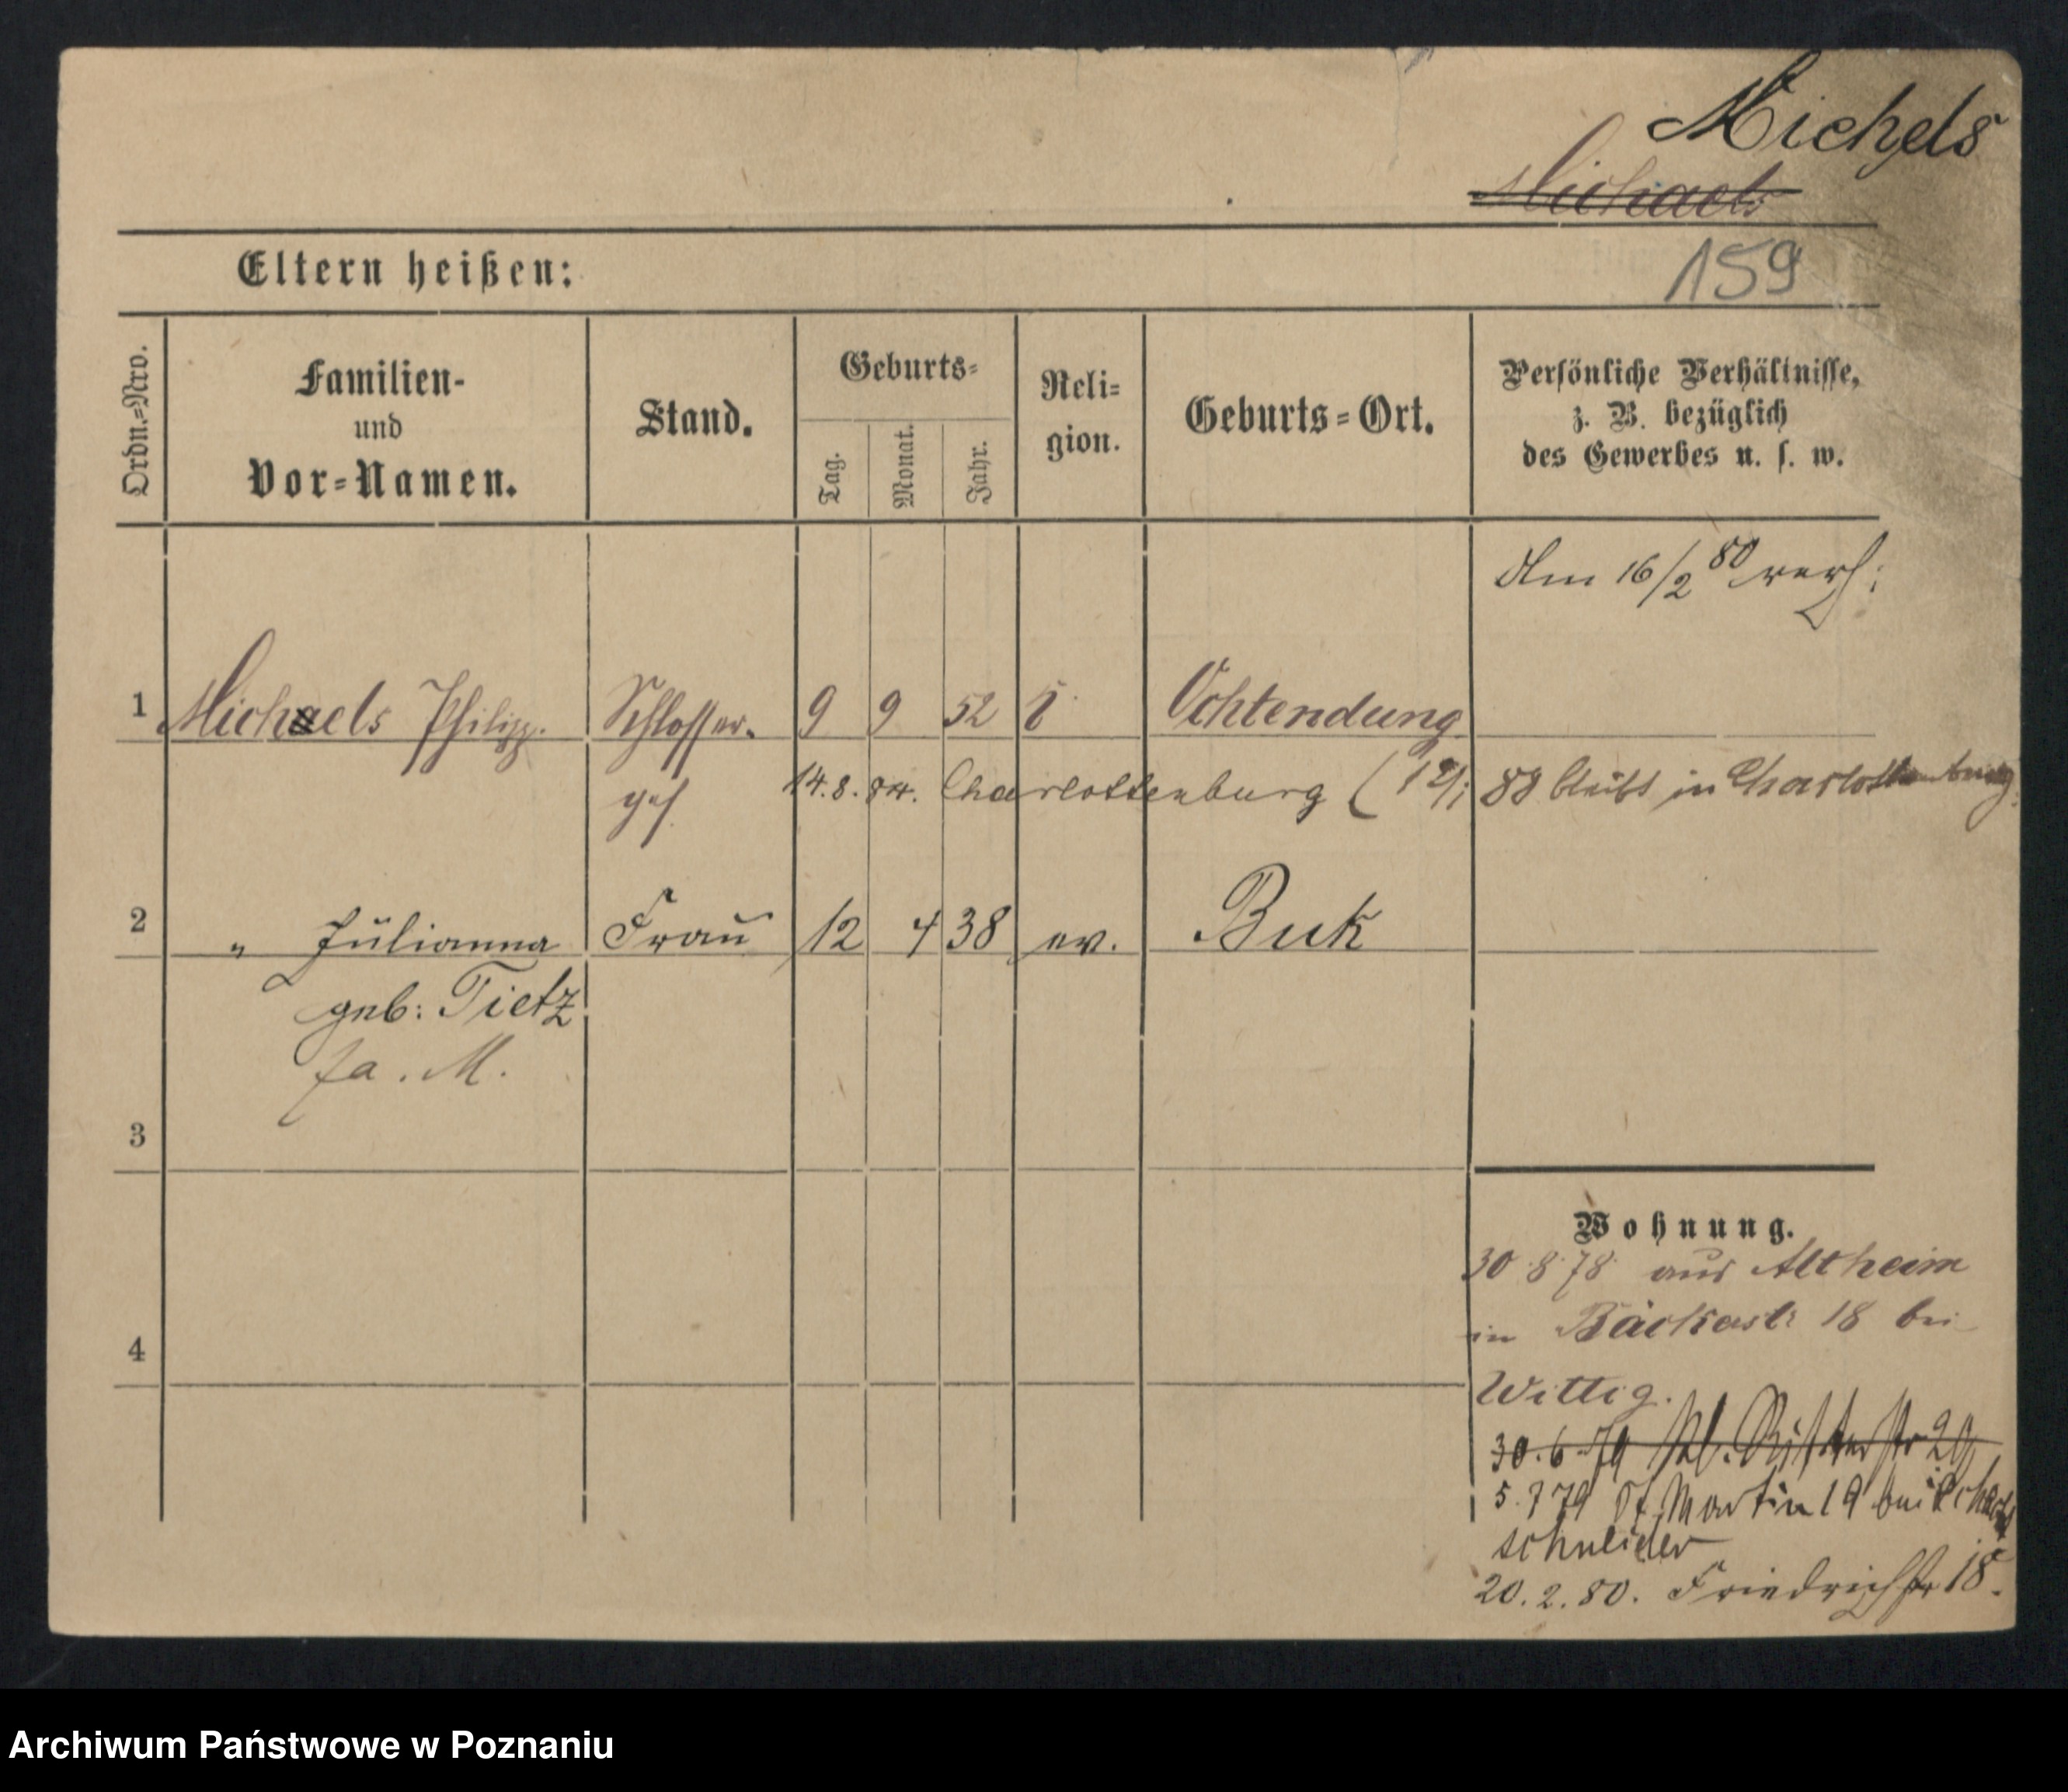 Michels
Michaels
159
Eltern heißen:
Ordn.=Nro.
Familien-
und
Vor=Namen.
Stand.
Geburts=
Tag.
Monat.
Jahr.
Reli=
gion.
Geburts=Ort.
Persönliche Verhältnisse,
z. B. bezüglich
des Gewerbes u. s. w.
Am 16/2 80 verh:
1 Michaels Philipp. Schlosser. 9 9 52 Ochtendung
14.8.84. Charlottenburg ( 88 bleibt in Charlottenburg.
2 " Julianna Frau 12 4 38 ev. Buk
geb: Tietz
fa. M.
3
Wohnung.
30 8 78 aus Altheim
in Bäckerstr 18 bei
4
Wittig.
30.6.79 Kl. Ritterstr 29
5.7 79 St. Martin 19 bei
schneider
20.2.80. Friedrichstr 18.
Archiwum Państwowe w Poznaniu